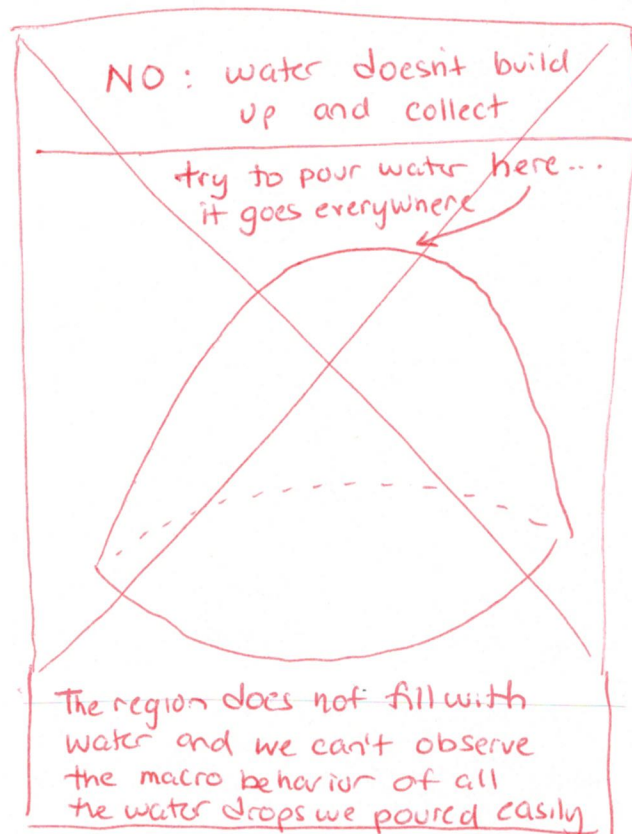 NO: water doesn't build
up and collect
try to pour water here...
it goes everywhere
The region does not fill with
water and we can't observe
the macro behavior of all
the water drops we poured easily